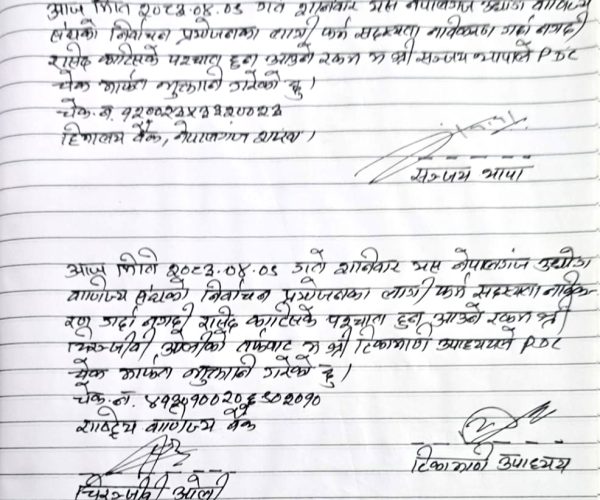 आज मिति २०८३.०४.०९ गते शनिवार यस नेपालगंज उद्योग वाणिज्य
संघको निर्वाचन प्रयोजनका लागी फर्म सदस्यता नाविकरण गर्दा नगदी
रासिद काटिसके पश्चात हुन आउने रकम म श्री सञ्जय थापाले PDC
चेक मार्फत भुक्तानी गरेको छु।
चेक.न.
हिमालय बैंक, नेपालगंज शाखा।
सञ्जय थापा
आज मिति २०८३.०४.०९ गते शनिवार यस नेपालगंज उद्योग
वाणिज्य संघको निर्वाचन प्रयोजनका लागी फर्म सदस्यता नाविक-
रण गर्दा नगदी रासिद काटिसके पश्चात हुन आउने रकम श्री
चिरञ्जीवी ओलीको तर्फबाट म श्री टिकामणी उपाध्ययले PDC
चेक मार्फत भुक्तानी गरेको छु।
चेक.न.
राष्ट्रिय वाणिज्य बैंक
टिकामणी उपाध्यय
चिरञ्जीवी ओली